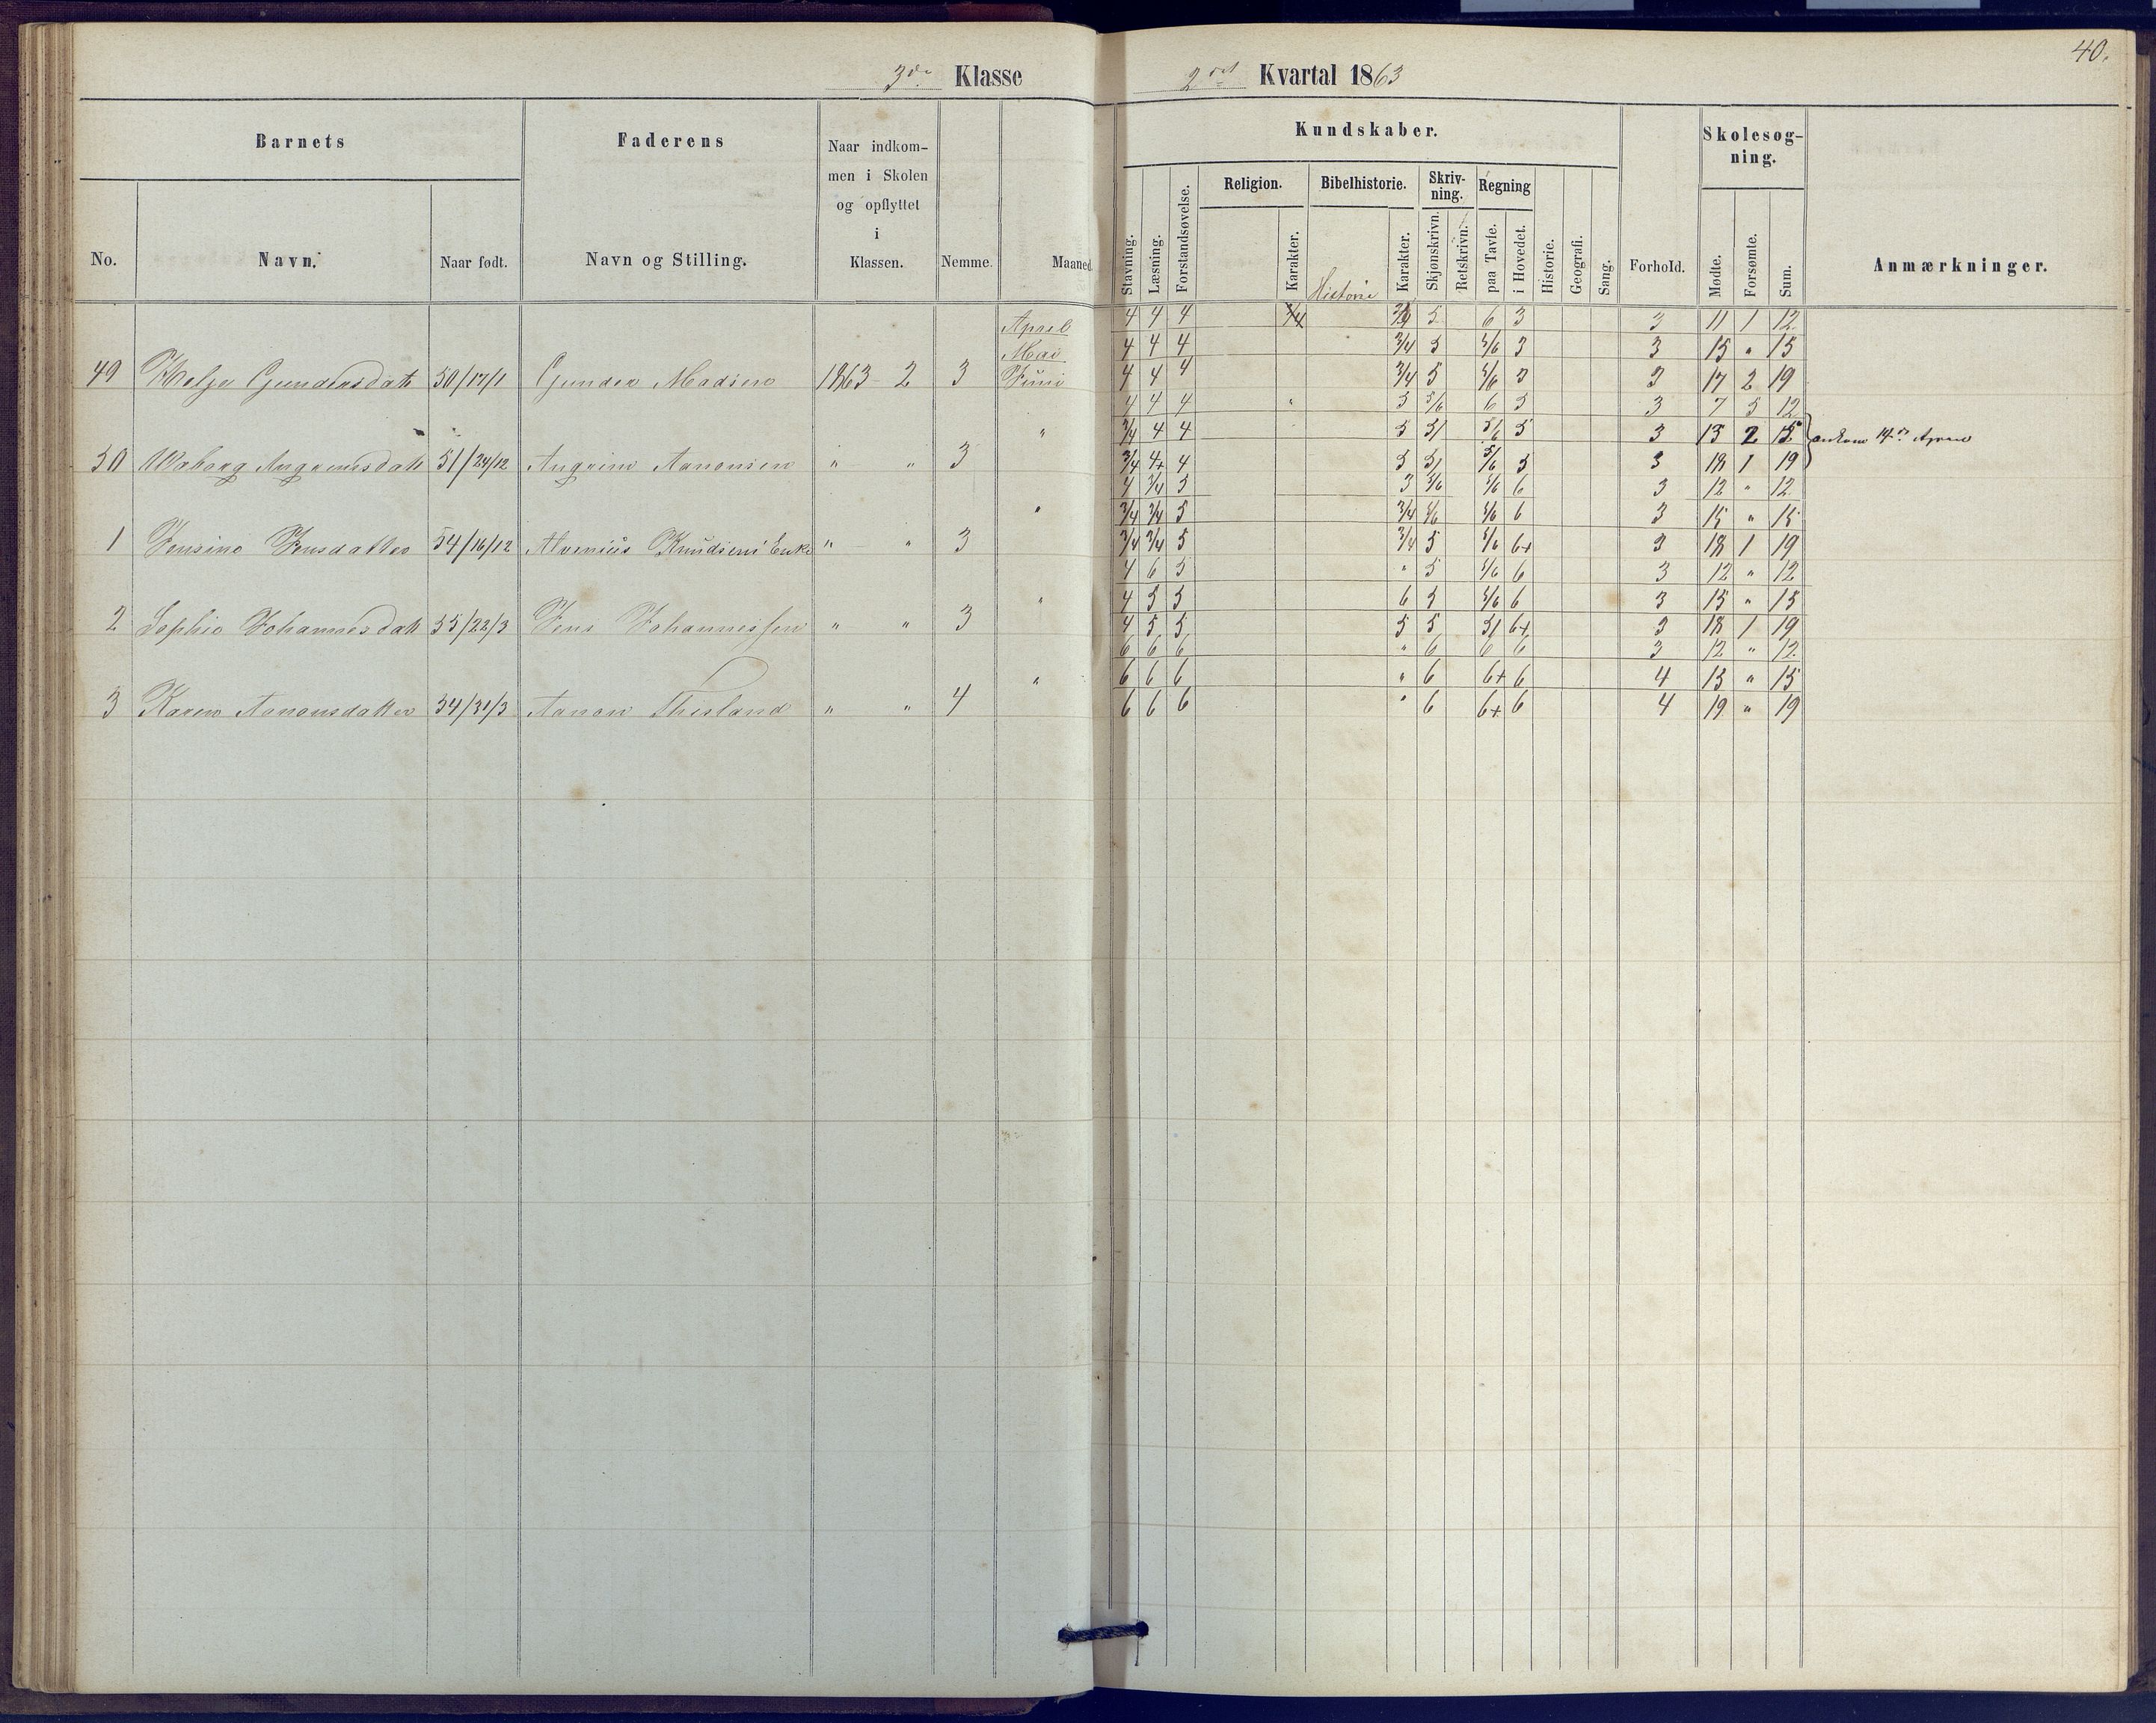 40.
3die Klasse
2det Kvartal 1863
Barnets
Faderens
Naar indkom-
men i Skolen
og opflyttet
i
Klassen.
No.
Navn.
Naar født.
Navn og Stilling.
Nemme.
Maaned.
Kundskaber.
Skolesog-
ning.
Stavning.
Læsning.
Forstandsøvelse.
Religion.
Karakter.
Bibelhistorie.
Historie
Karakter.
Skriv-
ning.
Skjønskrivn.
Retskrivn.
Regning
paa Tavle.
i Hovedet.
Historie.
Geografi.
Sang.
Forhold.
Mødte.
Forsømte.
Sum.
Anmærkninger.
April 4 4 4 5 6 3 3 11 1 12
Mai 4 4 4 3/4 5 5/6 3 3 15 " 15
49 Helge Gundersdatt 50/17/1 Gunder Madsen 1863 2 3 Juni 4 4 4 3/4 5 5/6 3 3 17 2 19
4 4 4 " 5 5/6 6 5 3 7 5 12
" 3/4 4 4 5 5/ 5/6 5 3 13 2 15 ankom 14de April
50 Angrimsdatt 51/24/12 Angrim Aanonsen " " 3 3/4 4+ 4 5 5/ 5/6 5 3 18 1 19
4 3/4 5 3 5/6 5/6 6 3 12 " 12
" 3/4 3/4 5 3/4 5/6 5/6 6 3 15 " 15
1 Jensine Jensdatter 54/16/12 Knudsens Enke " " 3 3/4 3/4 5 3/4 5 5/6 6+ 3 18 1 19
4 6 5 " 5 5/6 6 3 12 " 12
" 4 5 5 6 5 5/6 6 3 15 " 15
2 Sophie Johannesdatt 55/22/3 Jens Johannessen " " 3 4 5 5 5 5 5/ 6+ 3 18 1 19
6 6 6 " 6 6 6 3 12 " 12
" 6 6 6 " 6 6+ 6 4 15 " 15
3 Karen Aanonsdatter 54/31/3 Aanon Thisland " " 4 6 6 6 " 6 6+ 6 4 19 " 19